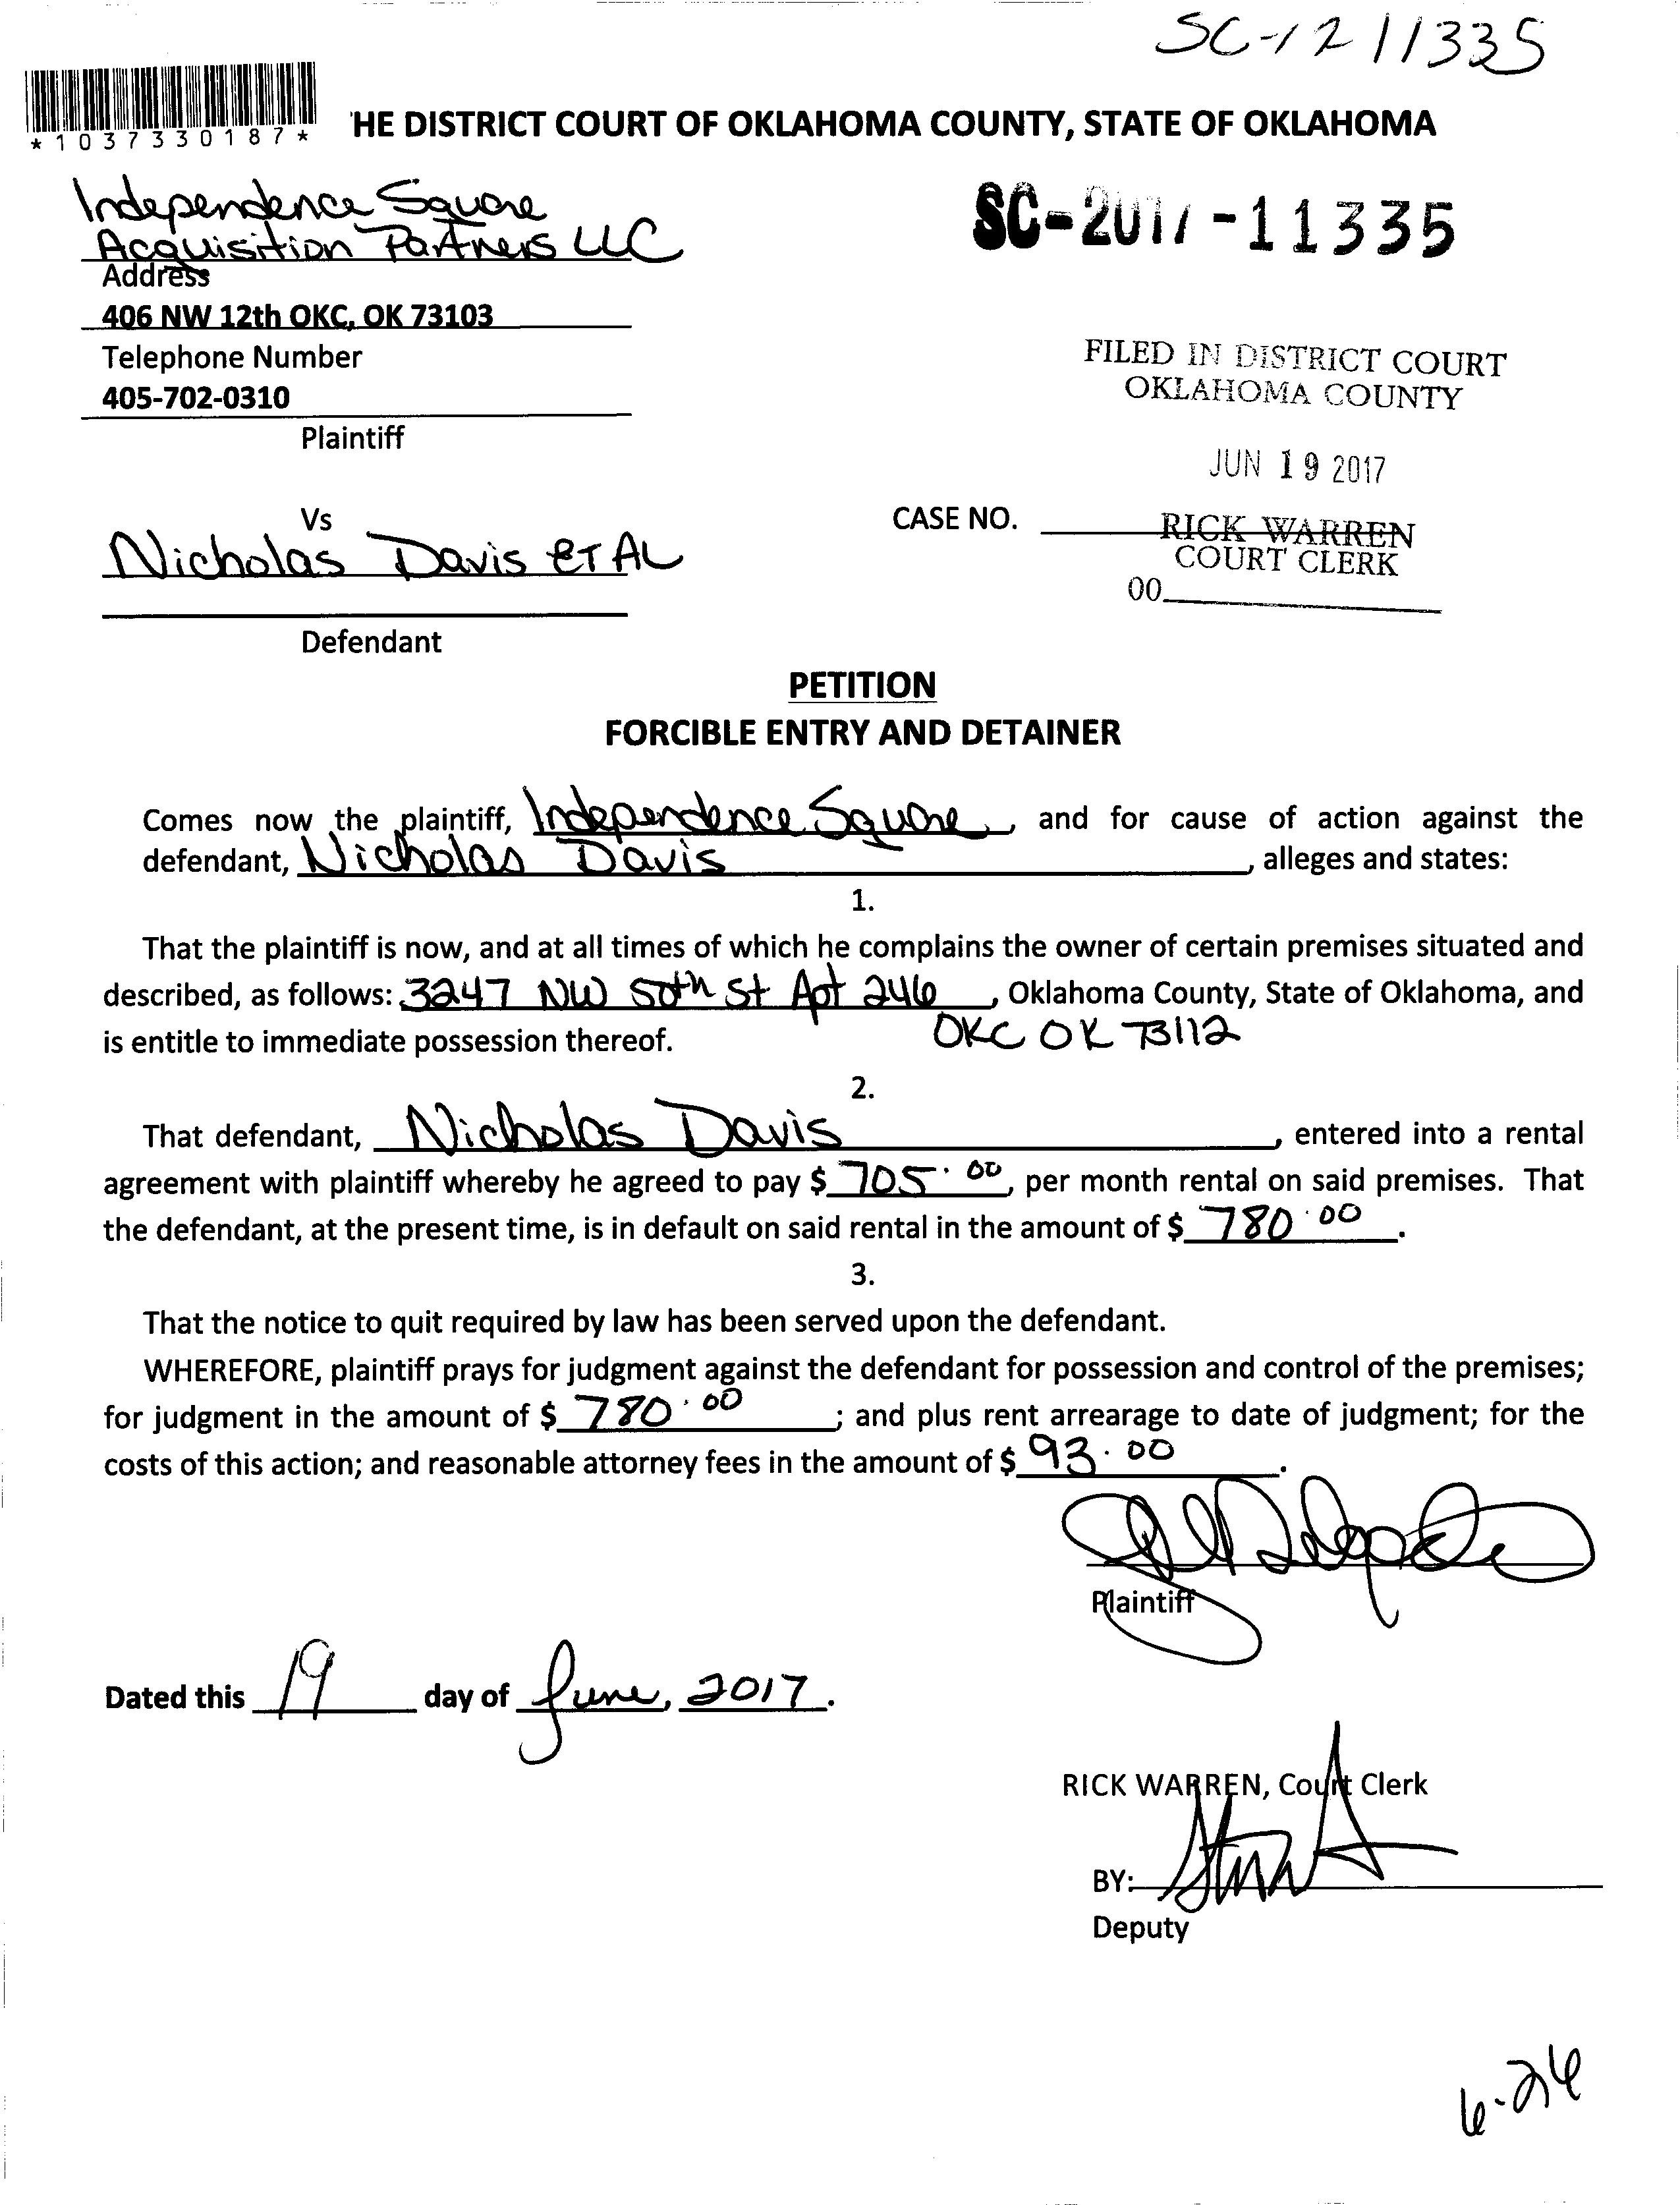 SC-12 11335
*1037330187*
'HE DISTRICT COURT OF OKLAHOMA COUNTY, STATE OF OKLAHOMA
Independence Square
Acquisition Partners LLC
SC-2017-11335
Address
406 NW 12th OKC, OK 73103
Telephone Number
405-702-0310
Plaintiff
FILED IN DISTRICT COURT
OKLAHOMA COUNTY
JUN 19 2017
Vs
CASE NO.
RICK WARREN
COURT CLERK
00
Nicholas Davis ET AL
Defendant
PETITION
FORCIBLE ENTRY AND DETAINER
Comes now the plaintiff, Independence Square, and for cause of action against the
defendant, Nicholas Davis, alleges and states:
1.
That the plaintiff is now, and at all times of which he complains the owner of certain premises situated and
described, as follows: 3247 NW 50th St Apt 246, Oklahoma County, State of Oklahoma, and
OKC OK 73112
is entitle to immediate possession thereof.
2.
That defendant, Nicholas Davis, entered into a rental
agreement with plaintiff whereby he agreed to pay $ 705.00, per month rental on said premises. That
the defendant, at the present time, is in default on said rental in the amount of $ 780.00.
3.
That the notice to quit required by law has been served upon the defendant.
WHEREFORE, plaintiff prays for judgment against the defendant for possession and control of the premises;
for judgment in the amount of $ 780.00; and plus rent arrearage to date of judgment; for the
costs of this action; and reasonable attorney fees in the amount of $ 93.00.
Plaintiff
Dated this 19 day of June, 2017.
RICK WARREN, Court Clerk
BY:
Deputy
6-26